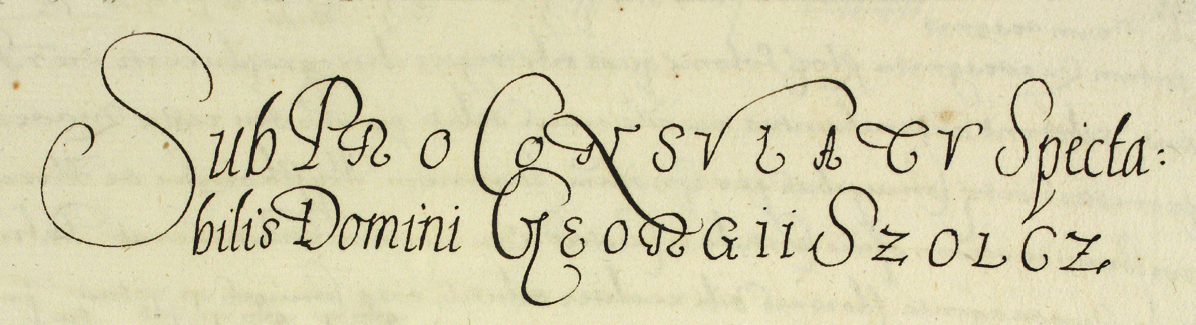 Sub PRO CONSVLATV Specta:
bilis Domini GEORGII SZOLCZ.